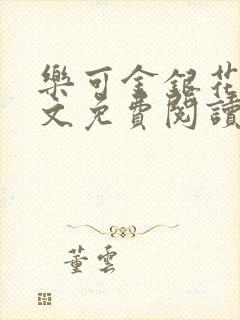 樂可金銀花
文免費閱讀
董雲